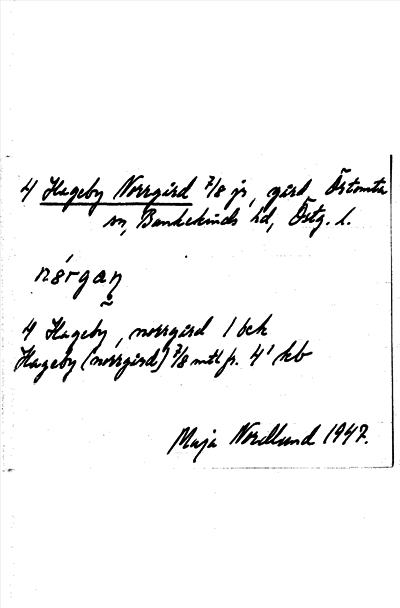 4 Hageby Norrgård 7/8 jr, gård Örtomta
sn, Bankekinds hd, Östg. l.
nǿrgaṇ
4 Hageby, norrgård 1 bek
Hageby (norrgård) 7/8 mtl fr. 4' kb
Maja Nordlund 1947.